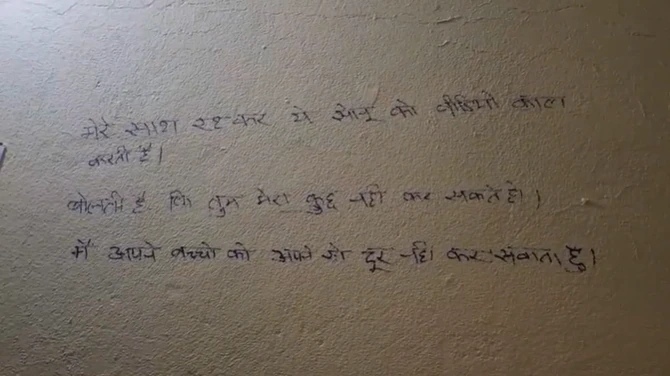 मेरे साथ रहकर ये सोनू को वीडियो काल
करती है।
बोलती है कि तुम मेरा कुछ नहीं कर सकते हो।
मैं अपने बच्चो को अपने से दूर नहीं कर सकता हु।